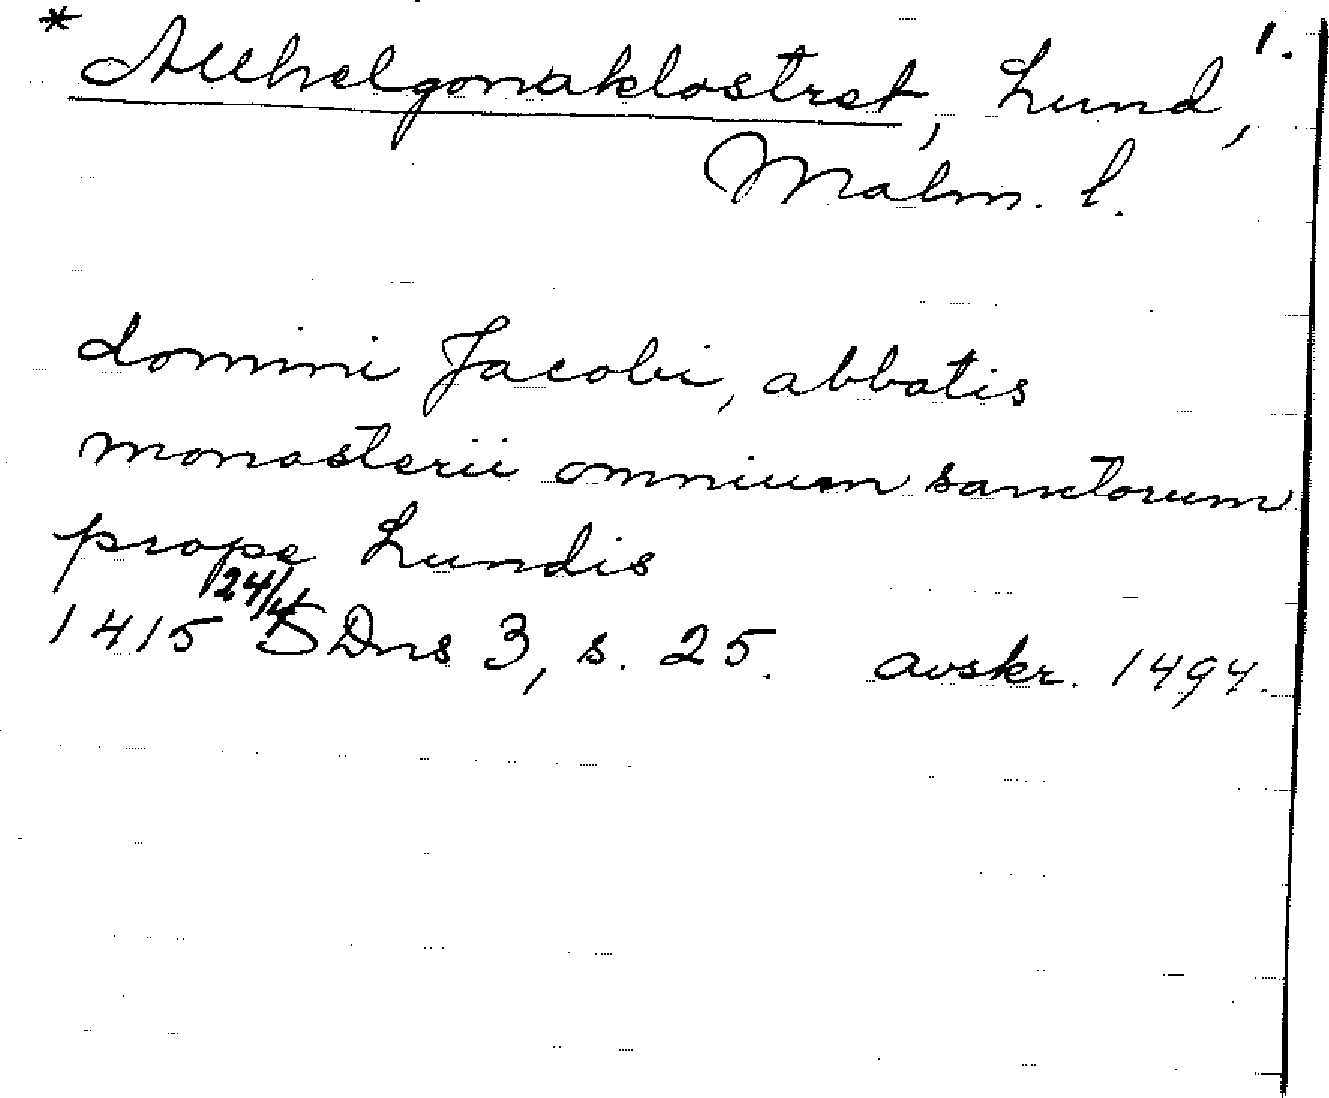 * Allhelgonaklostret, Lund, 1.
Malm. l.
domini Jacobi, abbatis
monasterii omnium sanctorum
prope Lundis
1415 24/4 SDns 3, s. 25. avskr. 1494.